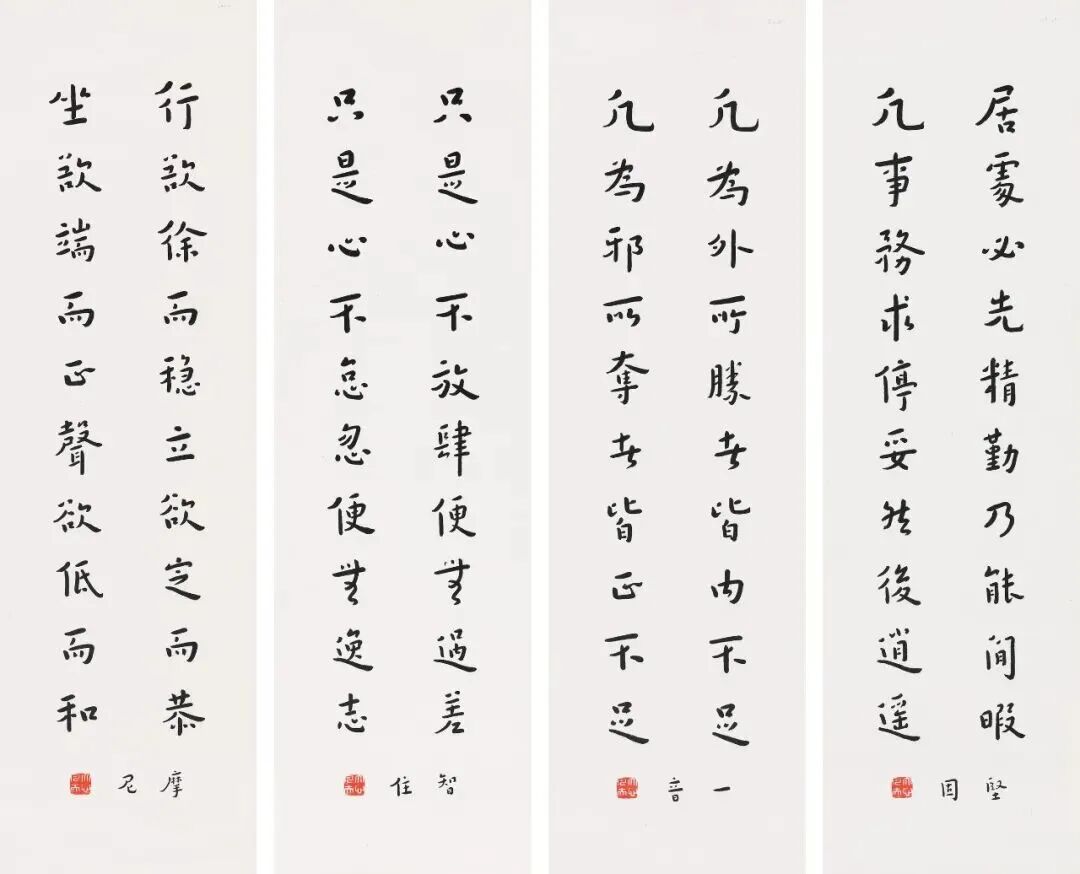 居處必先精勤乃能閒暇
凡事務求停妥然後逍遥
堅固
凡為外所勝者皆內不足
凡為邪所奪者皆正不足
一音
只是心不放肆便無過差
只是心不怠忽便無逸志
智住
行欲徐而穏立欲定而恭
坐欲端而正聲欲低而和
摩尼